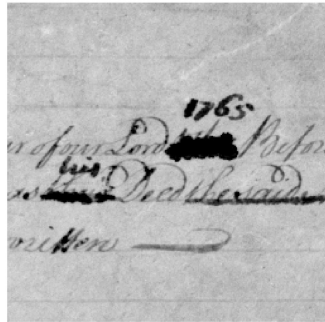 1765
ur of our Lord Befor
his
Deed the said
written